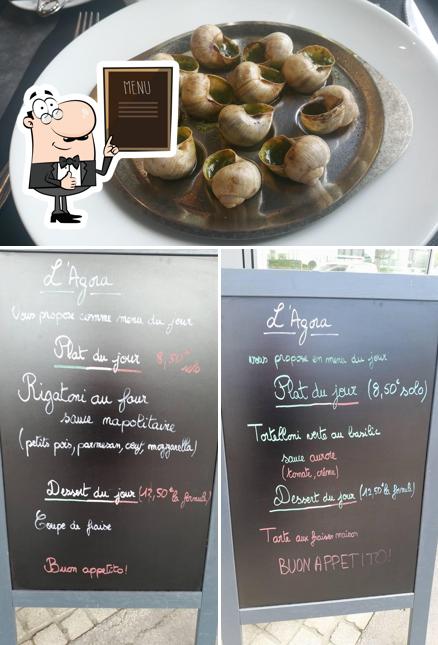 MENU
L'Agora
Vous propose comme menu du jour
Plat du jour 8,50€ solo
Rigatoni au four
sauce napolitaire
(petits pois, parmesan, mozzarella)
Dessert du jour (12,50€ la formule)
Coupe de fraise
Buon appetito!
L'Agora
vous propose en menu du jour
Plat du jour (8,50€ solo)
Tortelloni verte au basilic
sauce aurore
(tomate, crème)
Dessert du jour (12,50€ la formule)
Tarte aux fraises maison
BUON APPETITO!